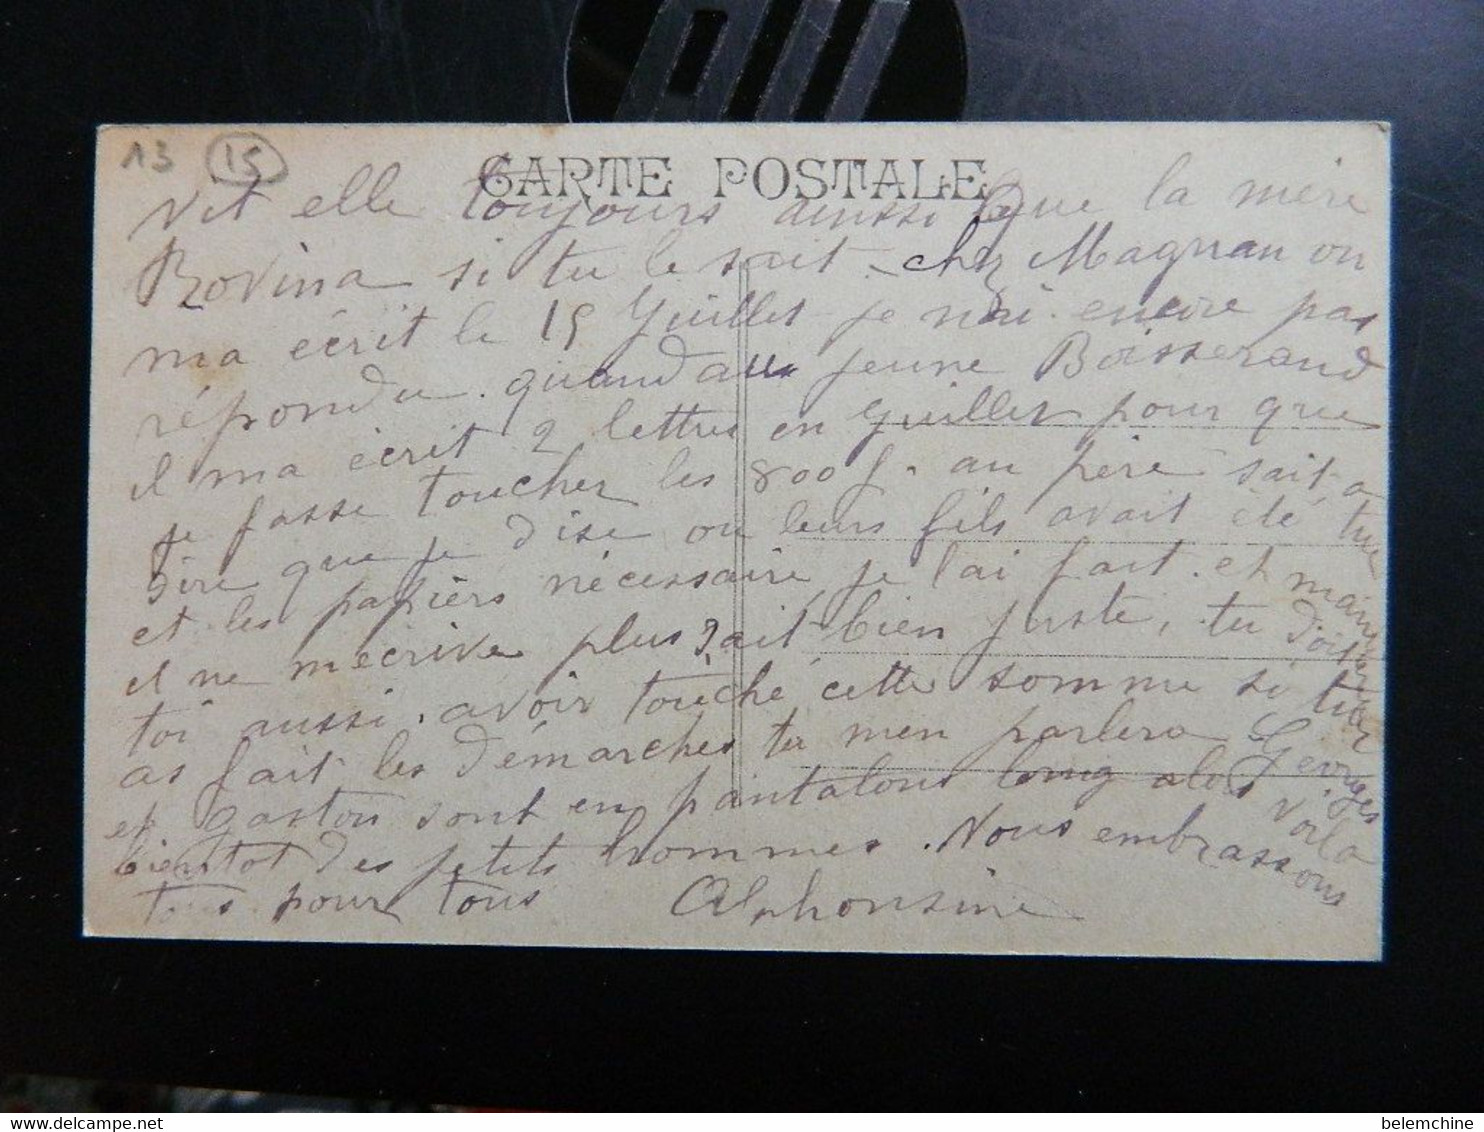 13 15
CARTE POSTALE
Vit elle toujours ainsi que la mère
Rovina si tu le sait. chez Magnan on
ma écrit le 15 Juillet je n'ai encore pas
répondu. quand au jeune Boisserand
il ma écrit 2 lettres en Juillet pour que
je fasse toucher les 800 f. au père sait a
dire que je dise ou leurs fils avait été tué
et les papiers nécessaire je l'ai fait. et maintenant
il ne mécrive plus sait bien juste, tu dois
toi aussi avoir touché cette somme si tu
as fait les démarches tu men parlera Georges
et gaston sont en pantalons long alors voila
bientot des petits hommes. Nous embrassons
tous pour tous Alphonsine
delcampe.net
belemchine